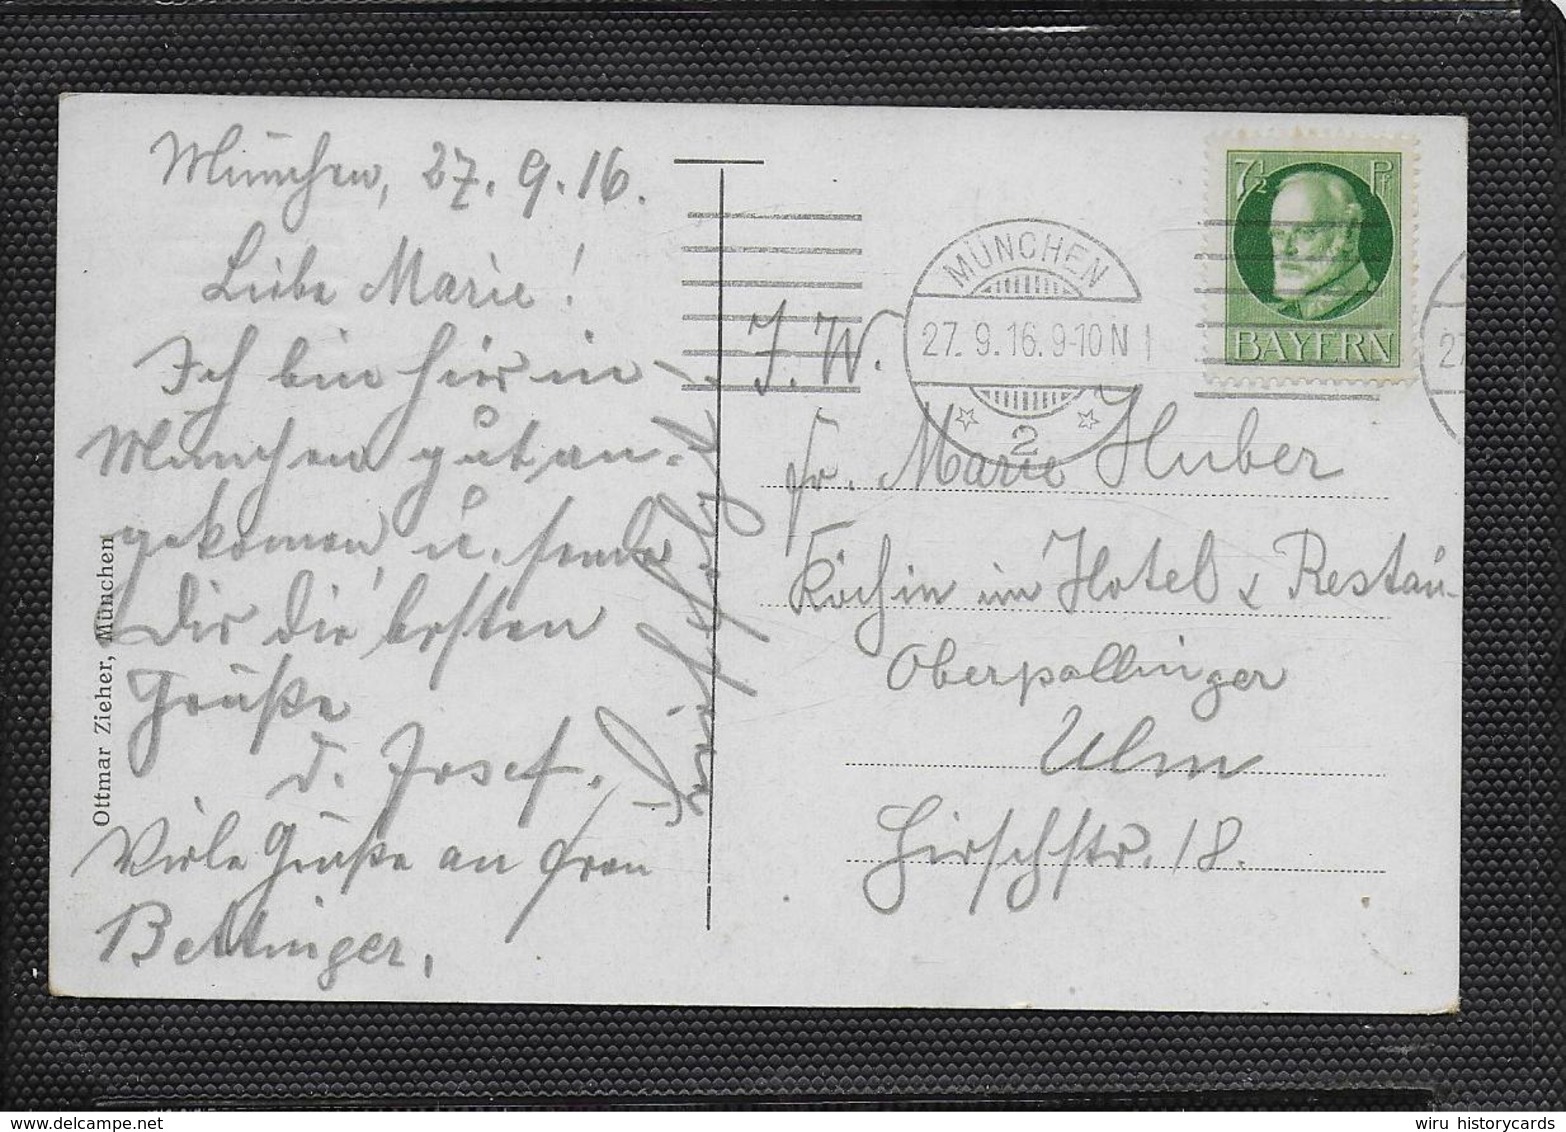 München, 27. 9. 16.
Liebe Marie!
Ich bin hier in
München gut an-
gekomen u. sende
Dir die besten
Grüße
D. Josef.
Viele Grüße an Frau
Bettinger,
Ottmar Zieher, München
MÜNCHEN
27. 9. 16. 9-10 N
2
7½ Pf
BAYERN
2
Fr. Marie Huber
Köchin im Hotel & Restau-
Oberpollinger
Ulm
Hirschstr. 18.
wiru historycards